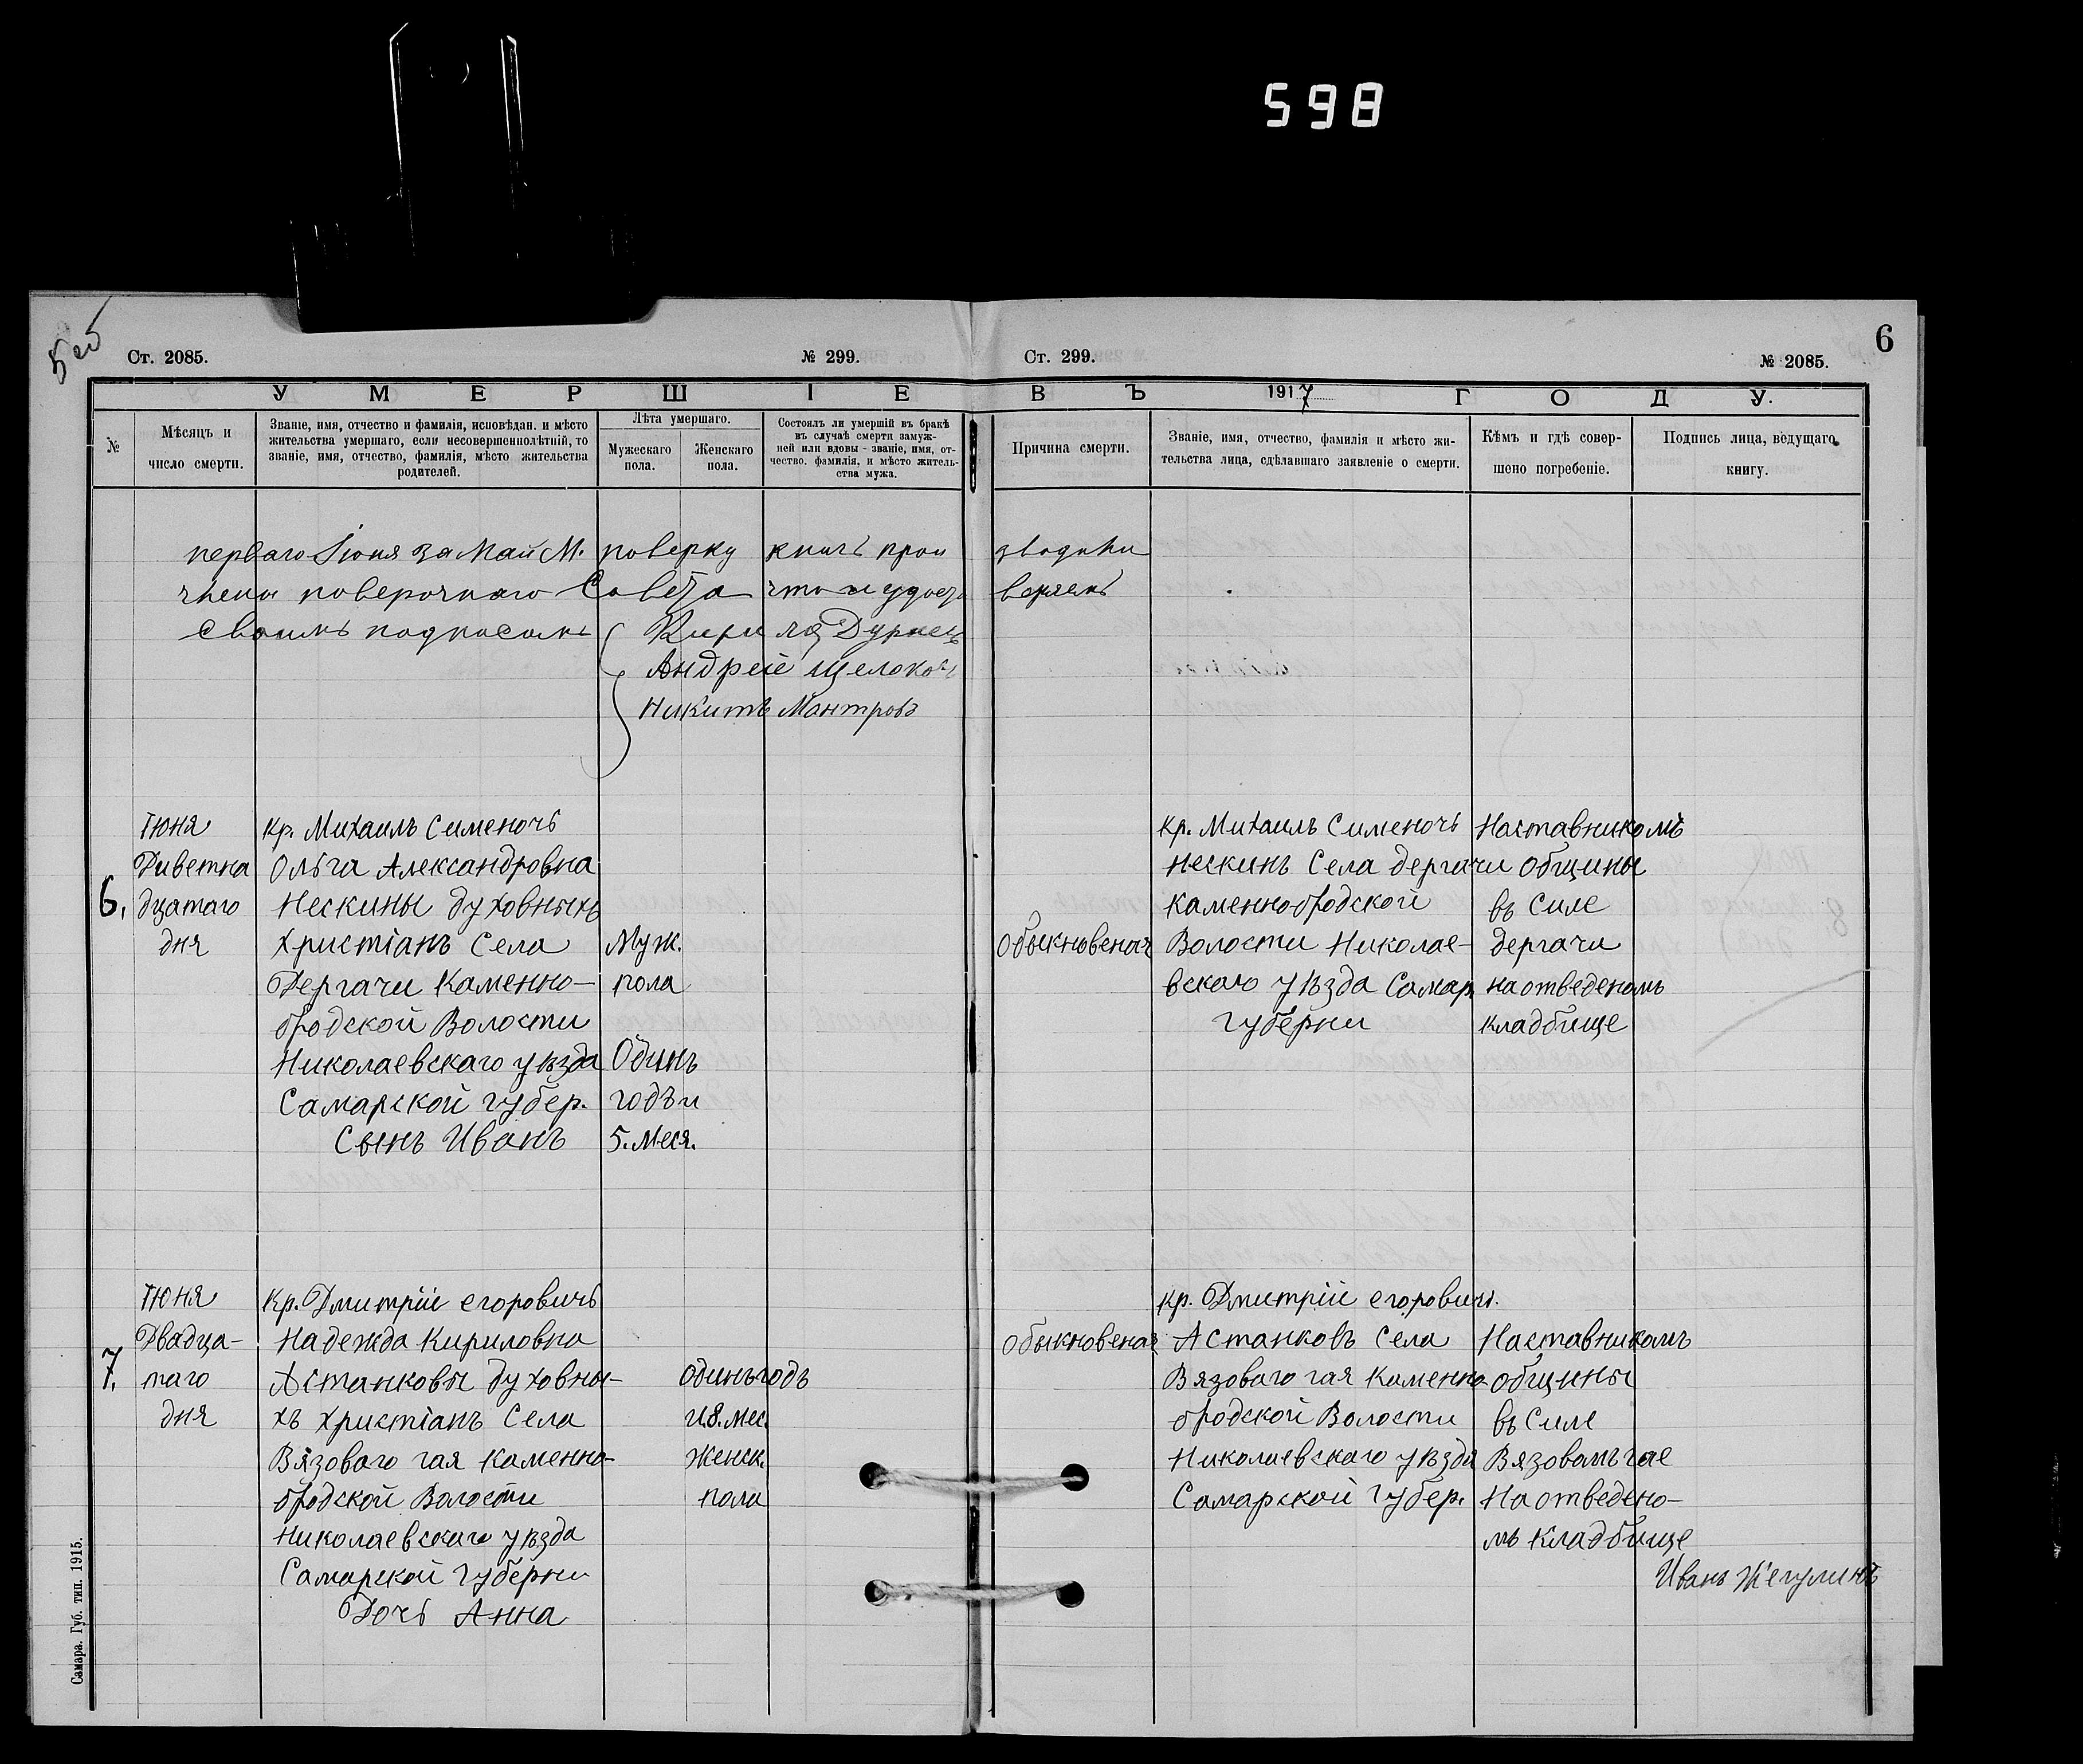 598
5 об
6
Ст. 2085. № 299. Ст. 299. № 2085.
УМЕРШІЕ ВЪ 1917 ГОДУ.
№
Мѣсяцъ и
число смерти.
Званіе, имя, отчество и фамилія, исповѣдан. и мѣсто
жительства умершаго, если несовершеннолѣтній, то
званіе, имя, отчество, фамилія, мѣсто жительства
родителей.
Лѣта умершаго.
Мужескаго
пола.
Женскаго
пола.
Состоялъ ли умершій въ бракѣ
въ случаѣ смерти замуж-
ней или вдовы - званіе, имя, от-
чество. фамилія, и мѣсто житель-
ства мужа.
Причина смерти.
Званіе, имя, отчество, фамилія и мѣсто жи-
тельства лица, сдѣлавшаго заявленіе о смерти.
Кѣмъ и гдѣ совер-
шено погребеніе.
Подпись лица, ведущаго
книгу.
перваго Іюня за Май М. поверку книгъ прои зводили
члены поверочнаго Совета что и удосто веряемъ
своимъ подписамъ
Андрей Щелоков
Никитъ Мантровъ
6.
Іюня
Диветна
дцатаго
дня
Кр. Михаилъ Сименочъ
Ольга Александровна
Нескины духовныхъ
христіанъ Села
Дергачи Каменно-
бродской Волости
Николаевскаго уѣзда
Самарской губер.
Сынъ Иванъ
Муж.
пола
Одинъ
годъ и
5. меся.
Обыкновеная
Кр. Михаилъ Сименочъ
Нескинъ Села дергачи
Каменнобродской
Волости Николае-
вскаго уѣзда Самар.
губерни
Наставникомъ
общины
въ Силе
дергачи
на отведеномъ
кладбище
7.
Іюня
Двадца-
таго
дня
Кр. Дмитрій егоровичъ
Надежда Кириловна
Астанковы духовны-
хъ христіанъ Села
Вязоваго гая Каменно-
бродской Волости
Николаевскаго уѣзда
Самарской Губерни
Дочь Анна
одинъ годъ
и 8. мес.
Женск.
пола
обыкновеная
кр. Дмитрій егоровичъ.
Астанковъ Села
Вязоваго гая Каменно
бродской Волости
Николаевскаго уѣзда
Самарской Губер.
Наставникомъ
общины
въ Силе
Вязовамъ гае
На отведено-
мъ кладбище
Иванъ Жегулинъ
Самара. Губ. тип. 1915.